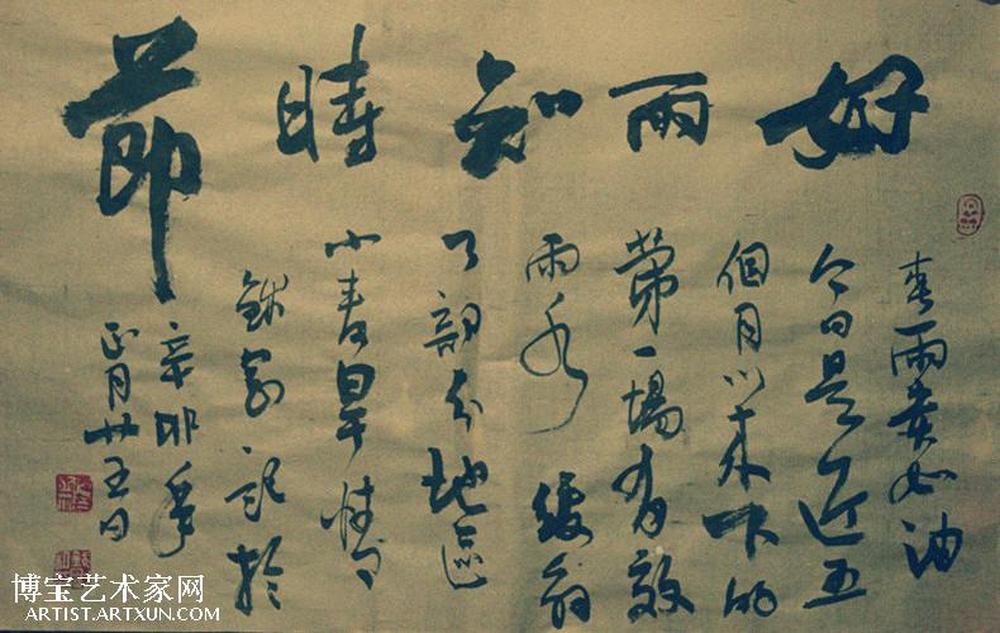 好雨知時節
春雨贵如油
今日是近五
個月以来下的
第一場有效
雨水 缓解
了部分地區
小麦旱情
记於
辛卯年
正月廿五日
博宝艺术家网
ARTIST.ARTXUN.COM